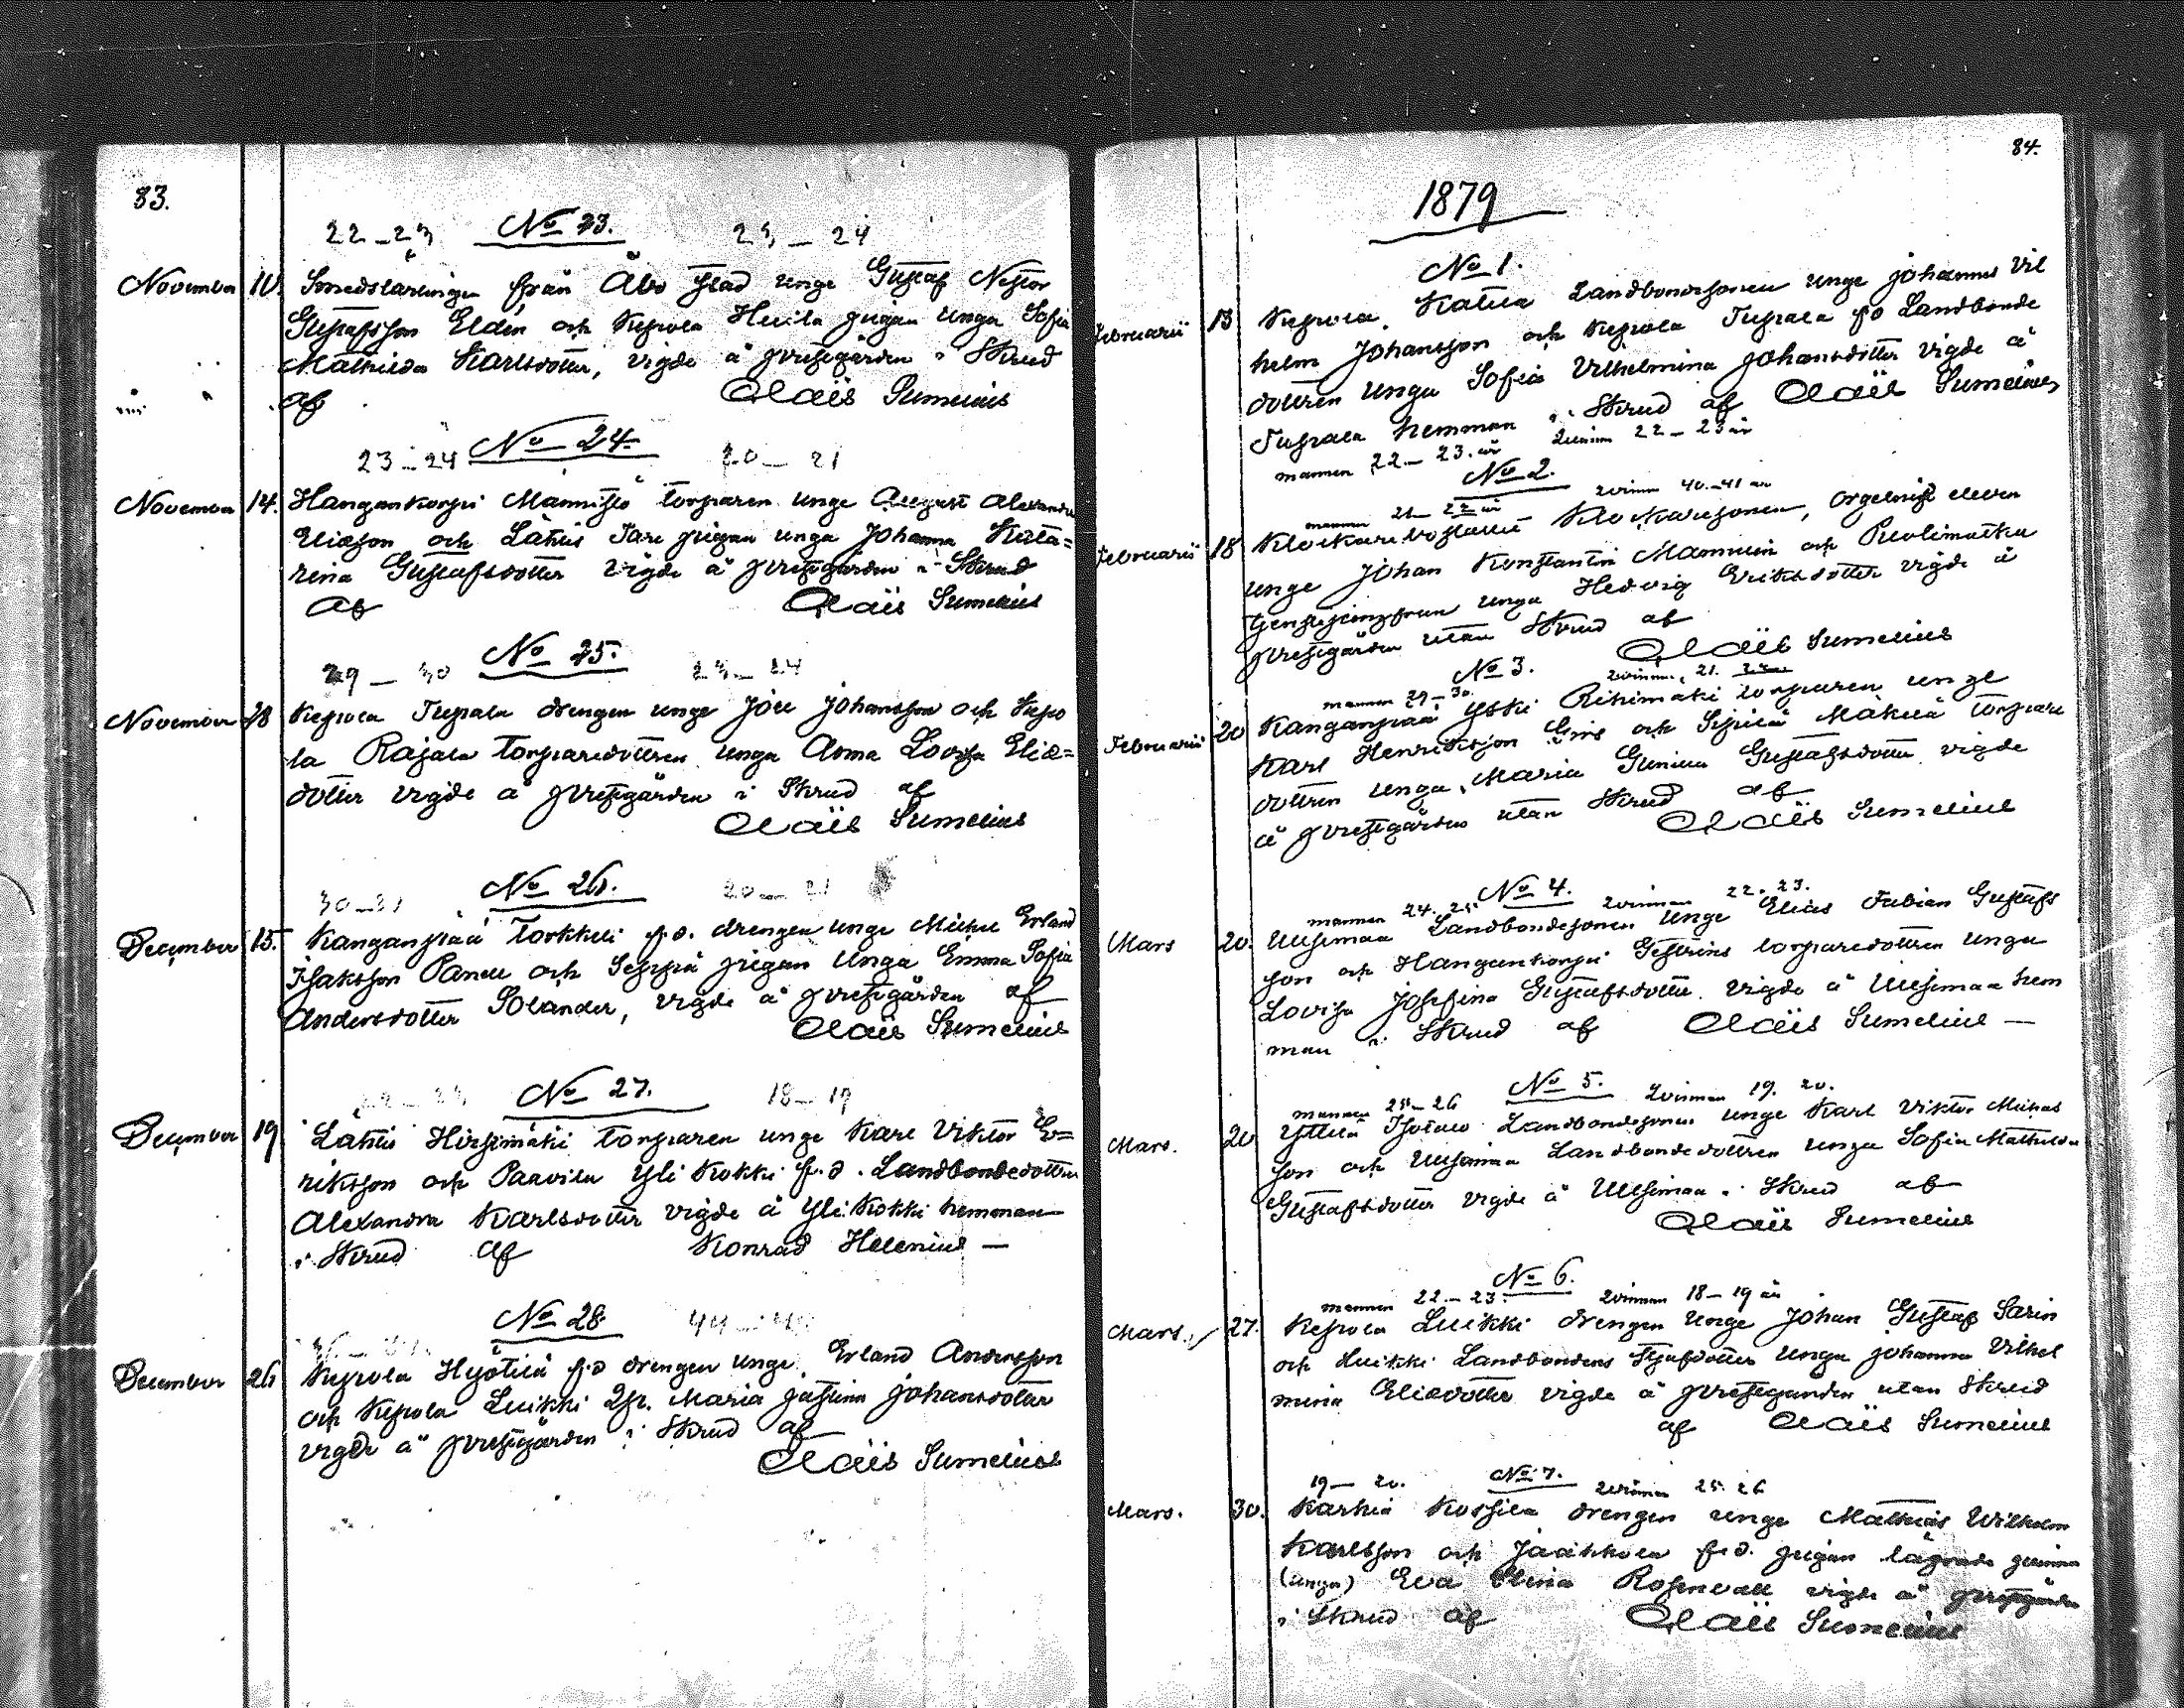 83.
22-23 No 23. 23 - 24
November 10. Smedslärlingen från Åbo stad unge Gustaf Nestor
Gustafsson Eldén och Kepola Huila pigan unga Sofia
Mathilda Karlsdotter, vigde å prestgården i Skrud
af Claës Sumelius
23-24 No 24. 20- 21
November 14. Hangankorpi Mannistö torparen unge August Alexander
Eliasson och Lähtis pigan unga Johanna Kata=
rina Gustafsdotter vigde å prestgården i Skrud
af Claës Sumelius
29 - 30 No 25. 23-24
November 28 Kepola Tupala drengen unge Joel Johansson och Kepo
la Rajala torparedottren unga Lovisa Elias=
dotter vigde å prestgården i Skrud af
Claës Sumelius
30-31 No 26. 20- 21
December 15. Kanganpää Torkkeli f.d. drengen unge Michel Erland
Isaksson och Seppä pigan unga Emma Sofia
Andersdotter Solander, vigde å prestgården af
Claës Sumelius
No 27. 18- 19
December 19. Lähtis Hirsimäki torparen unge Karl Viktor E=
riksson och Paavila Yli Kokki f.d. Landbondedottren
Alexandra Karlsdotter vigde å Yli Kokki hemman
i Skrud af Konrad Helenius -
No 28.
December 26 Kepola Hyötilä f.d drengen unge Erland Andersson
och Kepola Luikki Maria Justina Johansdotter
vigde å prestgården i Skrud af
Claës Sumelius
84.
1879
No 1.
Februarii 13 Kepola Landbondesonen unge Johannes Vil
helm Johansson och Kepola Tupala f.d Landbonde
dottren unga Sofia Vilhelmina Johansdotter vigde å
Tupala hemman i Skrud af Claës Sumelius
mannen 22- 23 år 22- 23 år
No 2.
mannen 21- 22 år qvinnan 40-41 år
Februarii 18 Klockaresonen, orgelnist eleven
unge Johan Konstantin Mannelin och
unga Hedvig Eriksdotter vigde å
prestgården utan Skrud af
Claës Sumelius
No 3.
mannen 29-30 qvinnan 21.
Februarii 20 Kanganpää Yski Riihimäki torparen unge
Karl Henriksson och Sipilä Mäkilä torpare
dottren unga Maria Gustafsdotter vigde
å prestgården utan Skrud af
Claës Sumelius
No 4.
mannen 24. 25 qvinnan 22. 23.
Mars 20. Uusimaa Landbondesonen unge Elias Fabian Gustafs
son och Hangankorpi torparedottren unga
Lovisa Josefina Gustafsdotter vigde å Uusimaa hem
man i Skrud af Claës Sumelius -
No 5.
mannen 25-26 qvinnan 19. 20.
Mars. 20 Landbondesonen unge Karl Viktor Michels
son och Uusimaa Landbondedottren unga Sofia Mathilda
Gustafsdotter vigde å Uusimaa i Skrud af
Claës Sumelius
No 6.
mannen 22- 23 qvinnan 18- 19 år
Mars. 27. Kepola Luikki drengen unge Johan Gustaf Sarin
och Luikki Landbondens unga Johanna Vilhel
mina Eliasdotter vigde å prestgården utan Skrud
af Claës Sumelius
19- 20. No 7. qvinnan 25. 26
Mars. 30. Karhia drengen unge Mathias Wilhelm
Karlsson och Jaakkola f.d. pigan lägrade qvinnan
(unga) Eva Stina Rosenvall vigde å prestgården
i Skrud af Claës Sumelius